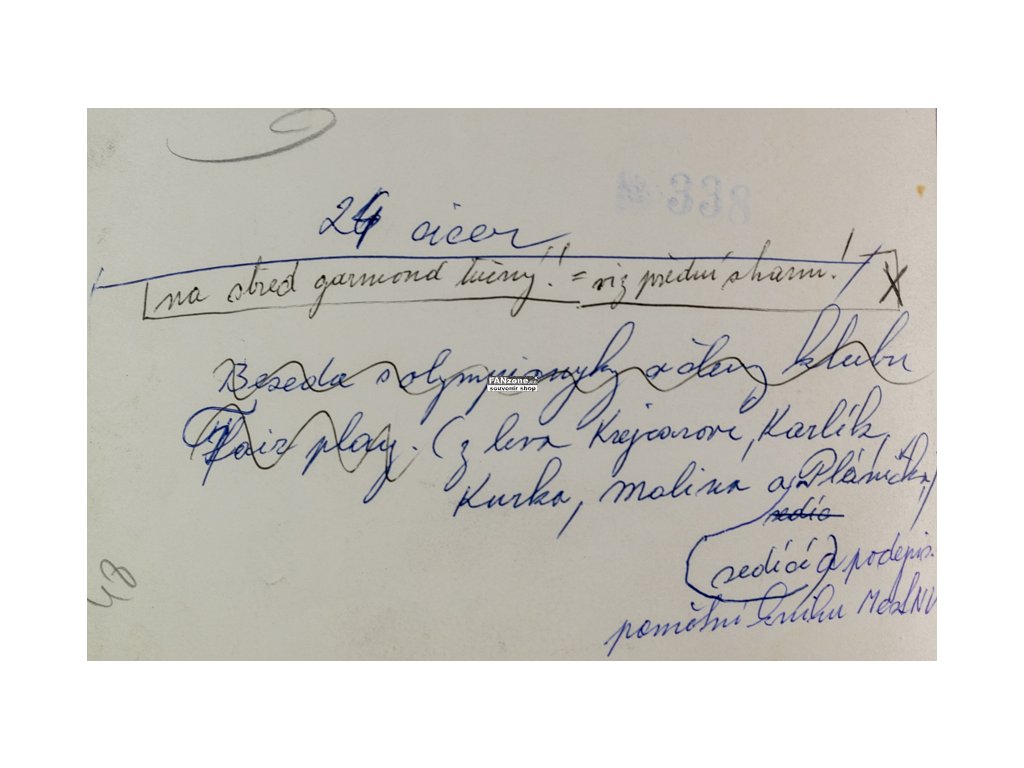 24 cicer
na střed garmond tučný!! = viz přední stranu!
X
Beseda s olympioniky a členy klubu
Fair play. (z leva Krejcarová, Karlík,
Kurka, Malina a Plánička)
sedíc
sedící) podepis.
pamětní knihu MěstNV
48
338
FANzone
souvenir shop